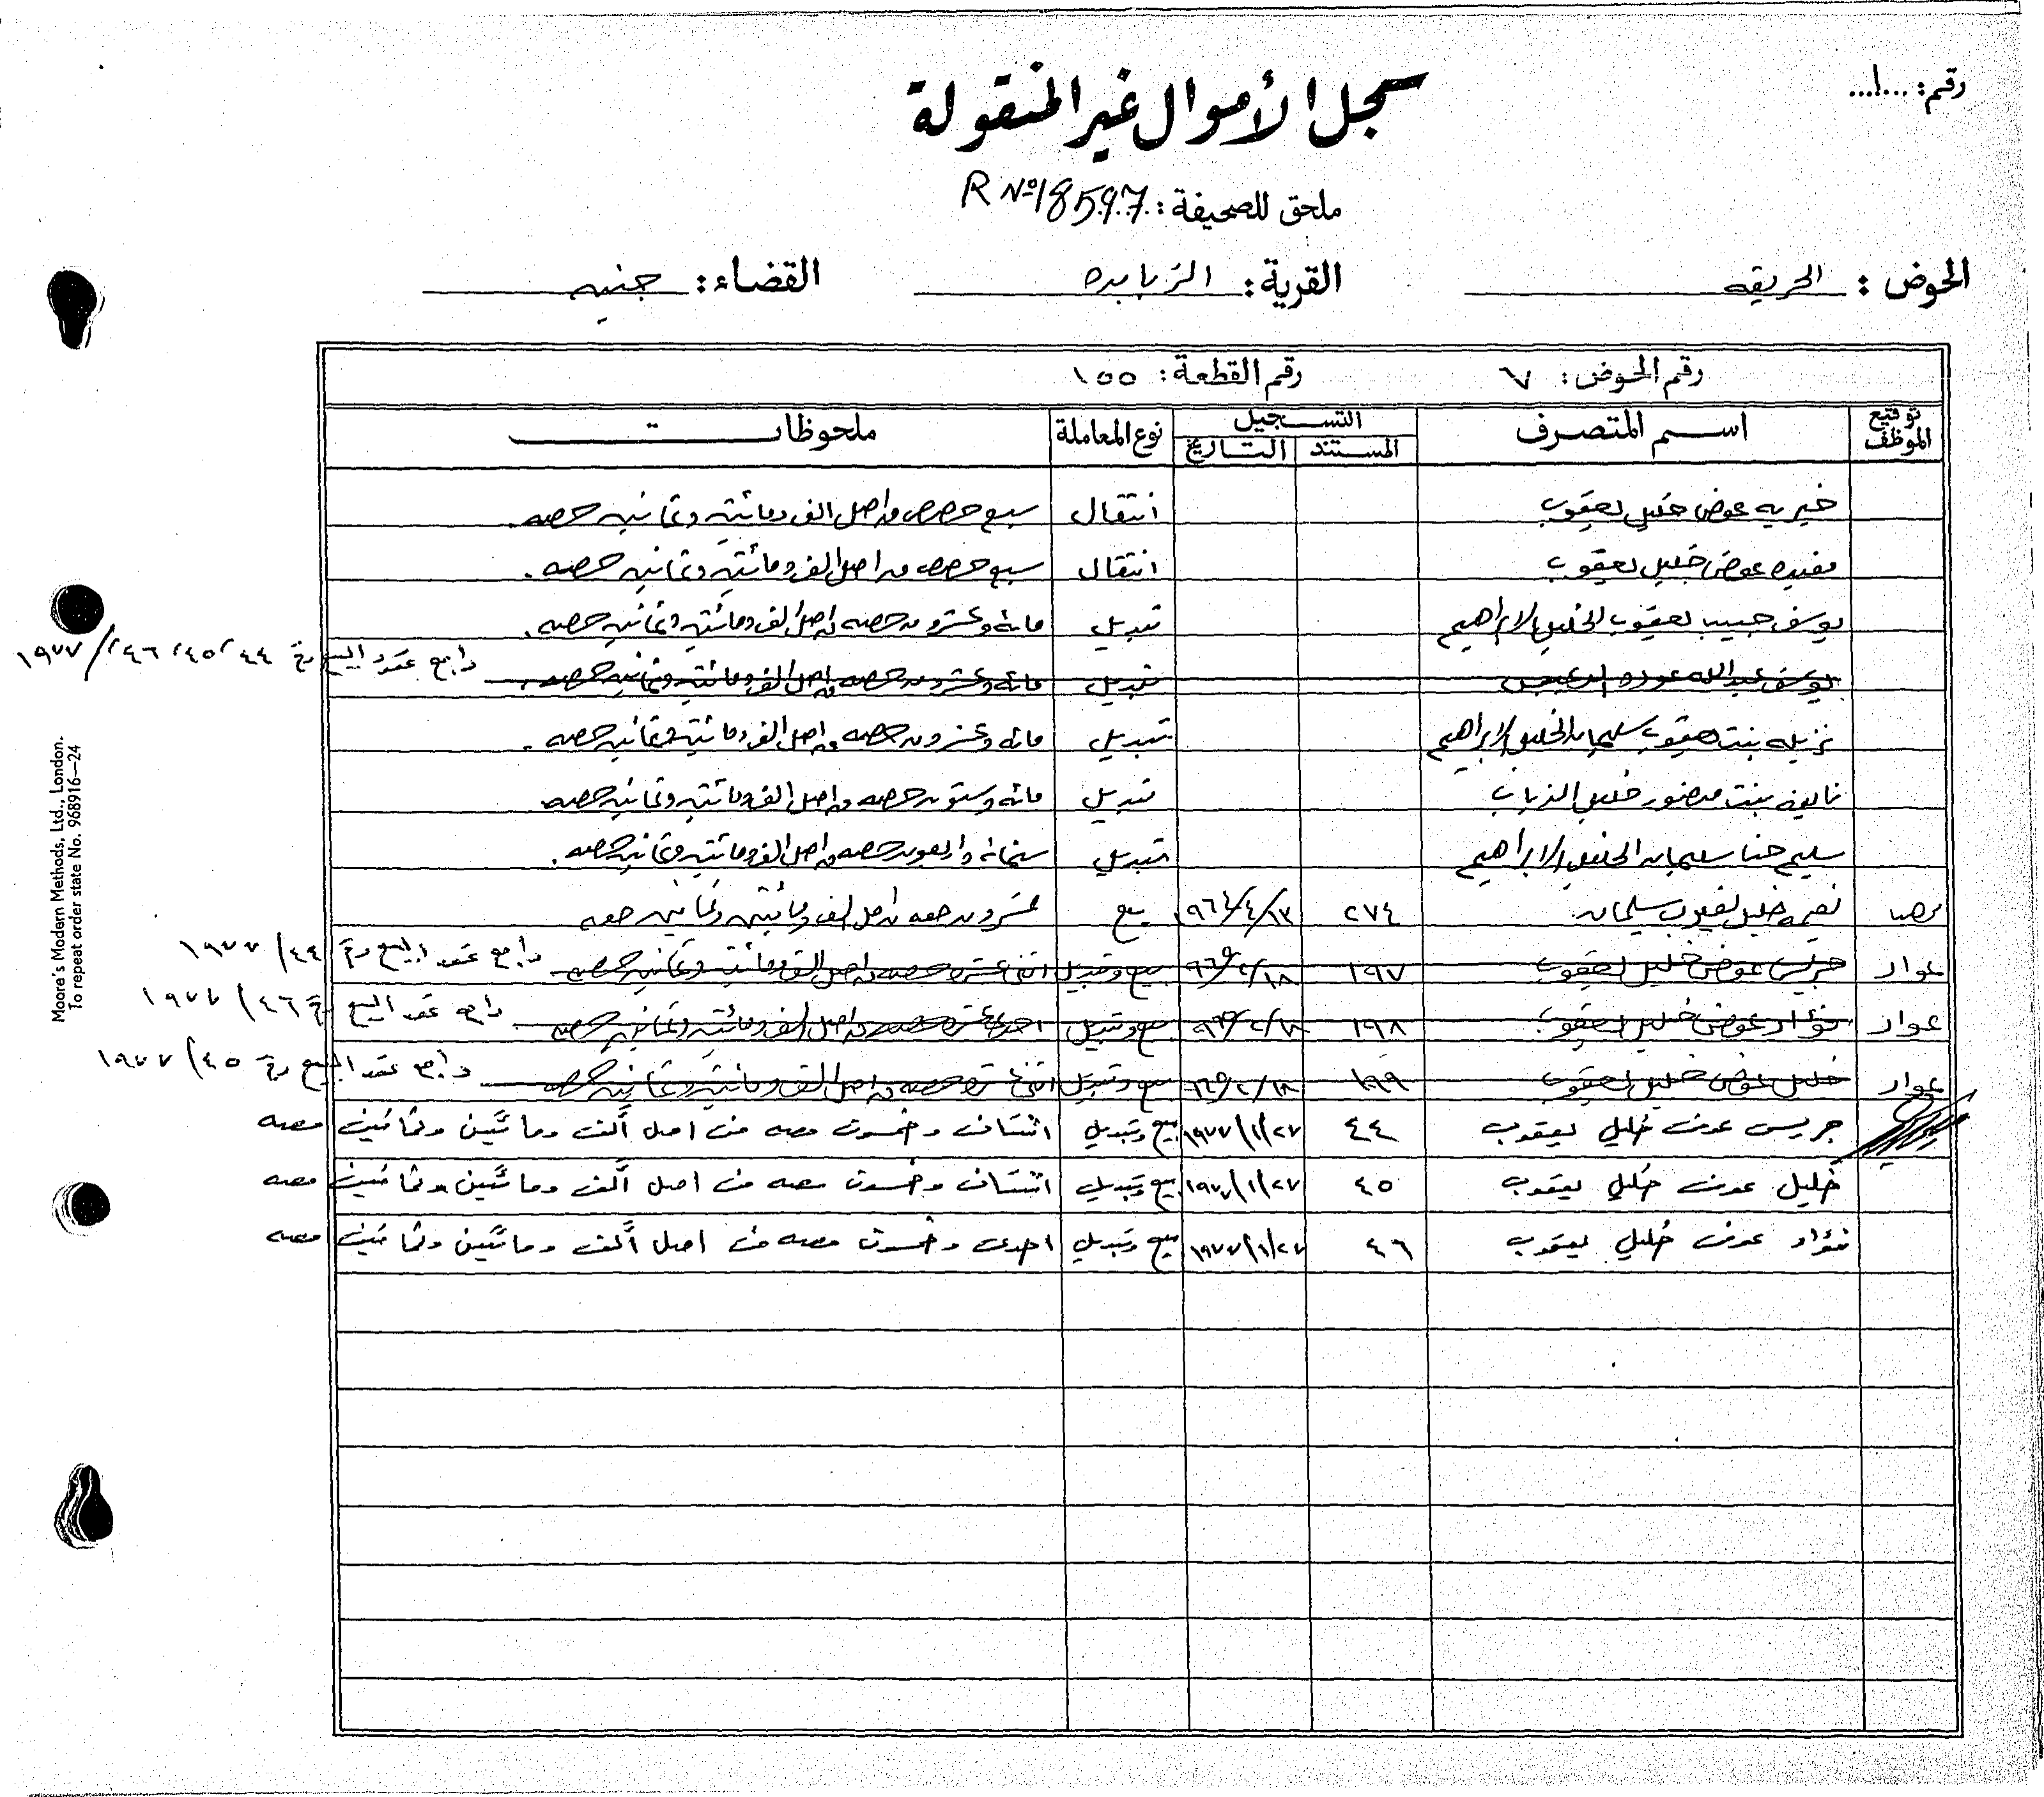 رقم: ...١...
سجل الأموال غير المنقولة
ملحق للصحيفة: R No 18597
الحوض: الحريقه القرية: الزبابده القضاء: جنين
رقم الحوض: ٧ رقم القطعة: ١٥٥
توقيع الموظف اسم المتصرف التسجيل المستند التاريخ نوع المعاملة ملحوظات
خيريه عوض خليل يعقوب انتقال سبع حصص من اصل الف ومائتين وثمانين حصه.
مفيده عوض خليل يعقوب انتقال سبع حصص من اصل الف ومائتين وثمانين حصه.
يوسف حبيب يعقوب الخليل الابراهيم تبديل مائة وعشرون حصه من اصل الف ومائتين وثمانين حصه.
يوسف عبدالله عوده تبديل مائة وعشرون حصه من اصل الف ومائتين وثمانين حصه. راجع عقود البيع رقم ٤٤، ٤٥، ٤٦/١٩٧٧
نزيله بنت يعقوب سليمان الخليل الابراهيم تبديل مائة وعشرون حصه من اصل الف ومائتين وثمانين حصه.
نايفه بنت منصور خليل الذياب تبديل مائة وستون حصه من اصل الف ومائتين وثمانين حصه
سليم حنا سليمان الخليل الابراهيم تبديل ستمائة واربعون حصه من اصل الف ومائتين وثمانين حصه.
نعيمه خليل يعقوب سليمان ٢٧٤ ٩٦٤/٤/١٣ بيع عشرون حصه من اصل الف ومائتين وثمانين حصه
عواد جريس عوض خليل يعقوب ١٩٧ ٩٦٥/٢/١٨ بيع وتبديل اثني عشره حصه من اصل الف ومائتين وثمانين حصه راجع عقد البيع رقم ٤٤/١٩٧٧
عواد فؤاد عوض خليل يعقوب ١٩٨ ٩٦٥/٢/١٨ بيع وتبديل احدى عشره حصه من اصل الف ومائتين وثمانين حصه راجع عقد البيع رقم ٤٦/١٩٧٧
عواد خليل عوض خليل يعقوب ١٩٩ ٩٦٥/٢/١٨ بيع وتبديل اثني عشره حصه من اصل الف ومائتين وثمانين حصه راجع عقد البيع رقم ٤٥/١٩٧٧
جريس عوض خليل يعقوب ٤٤ ١٩٧٧/١/٢٧ بيع وتبديل اثنتان وخمسون حصه من اصل ألف ومائتين وثمانين حصه
خليل عوض خليل يعقوب ٤٥ ١٩٧٧/١/٢٧ بيع وتبديل اثنتان وخمسون حصه من اصل ألف ومائتين وثمانين حصه
فؤاد عوض خليل يعقوب ٤٦ ١٩٧٧/١/٢٧ بيع وتبديل احدى وخمسون حصه من اصل ألف ومائتين وثمانين حصه
Moore's Modern Methods, Ltd., London.
To repeat order state No. 968916—24